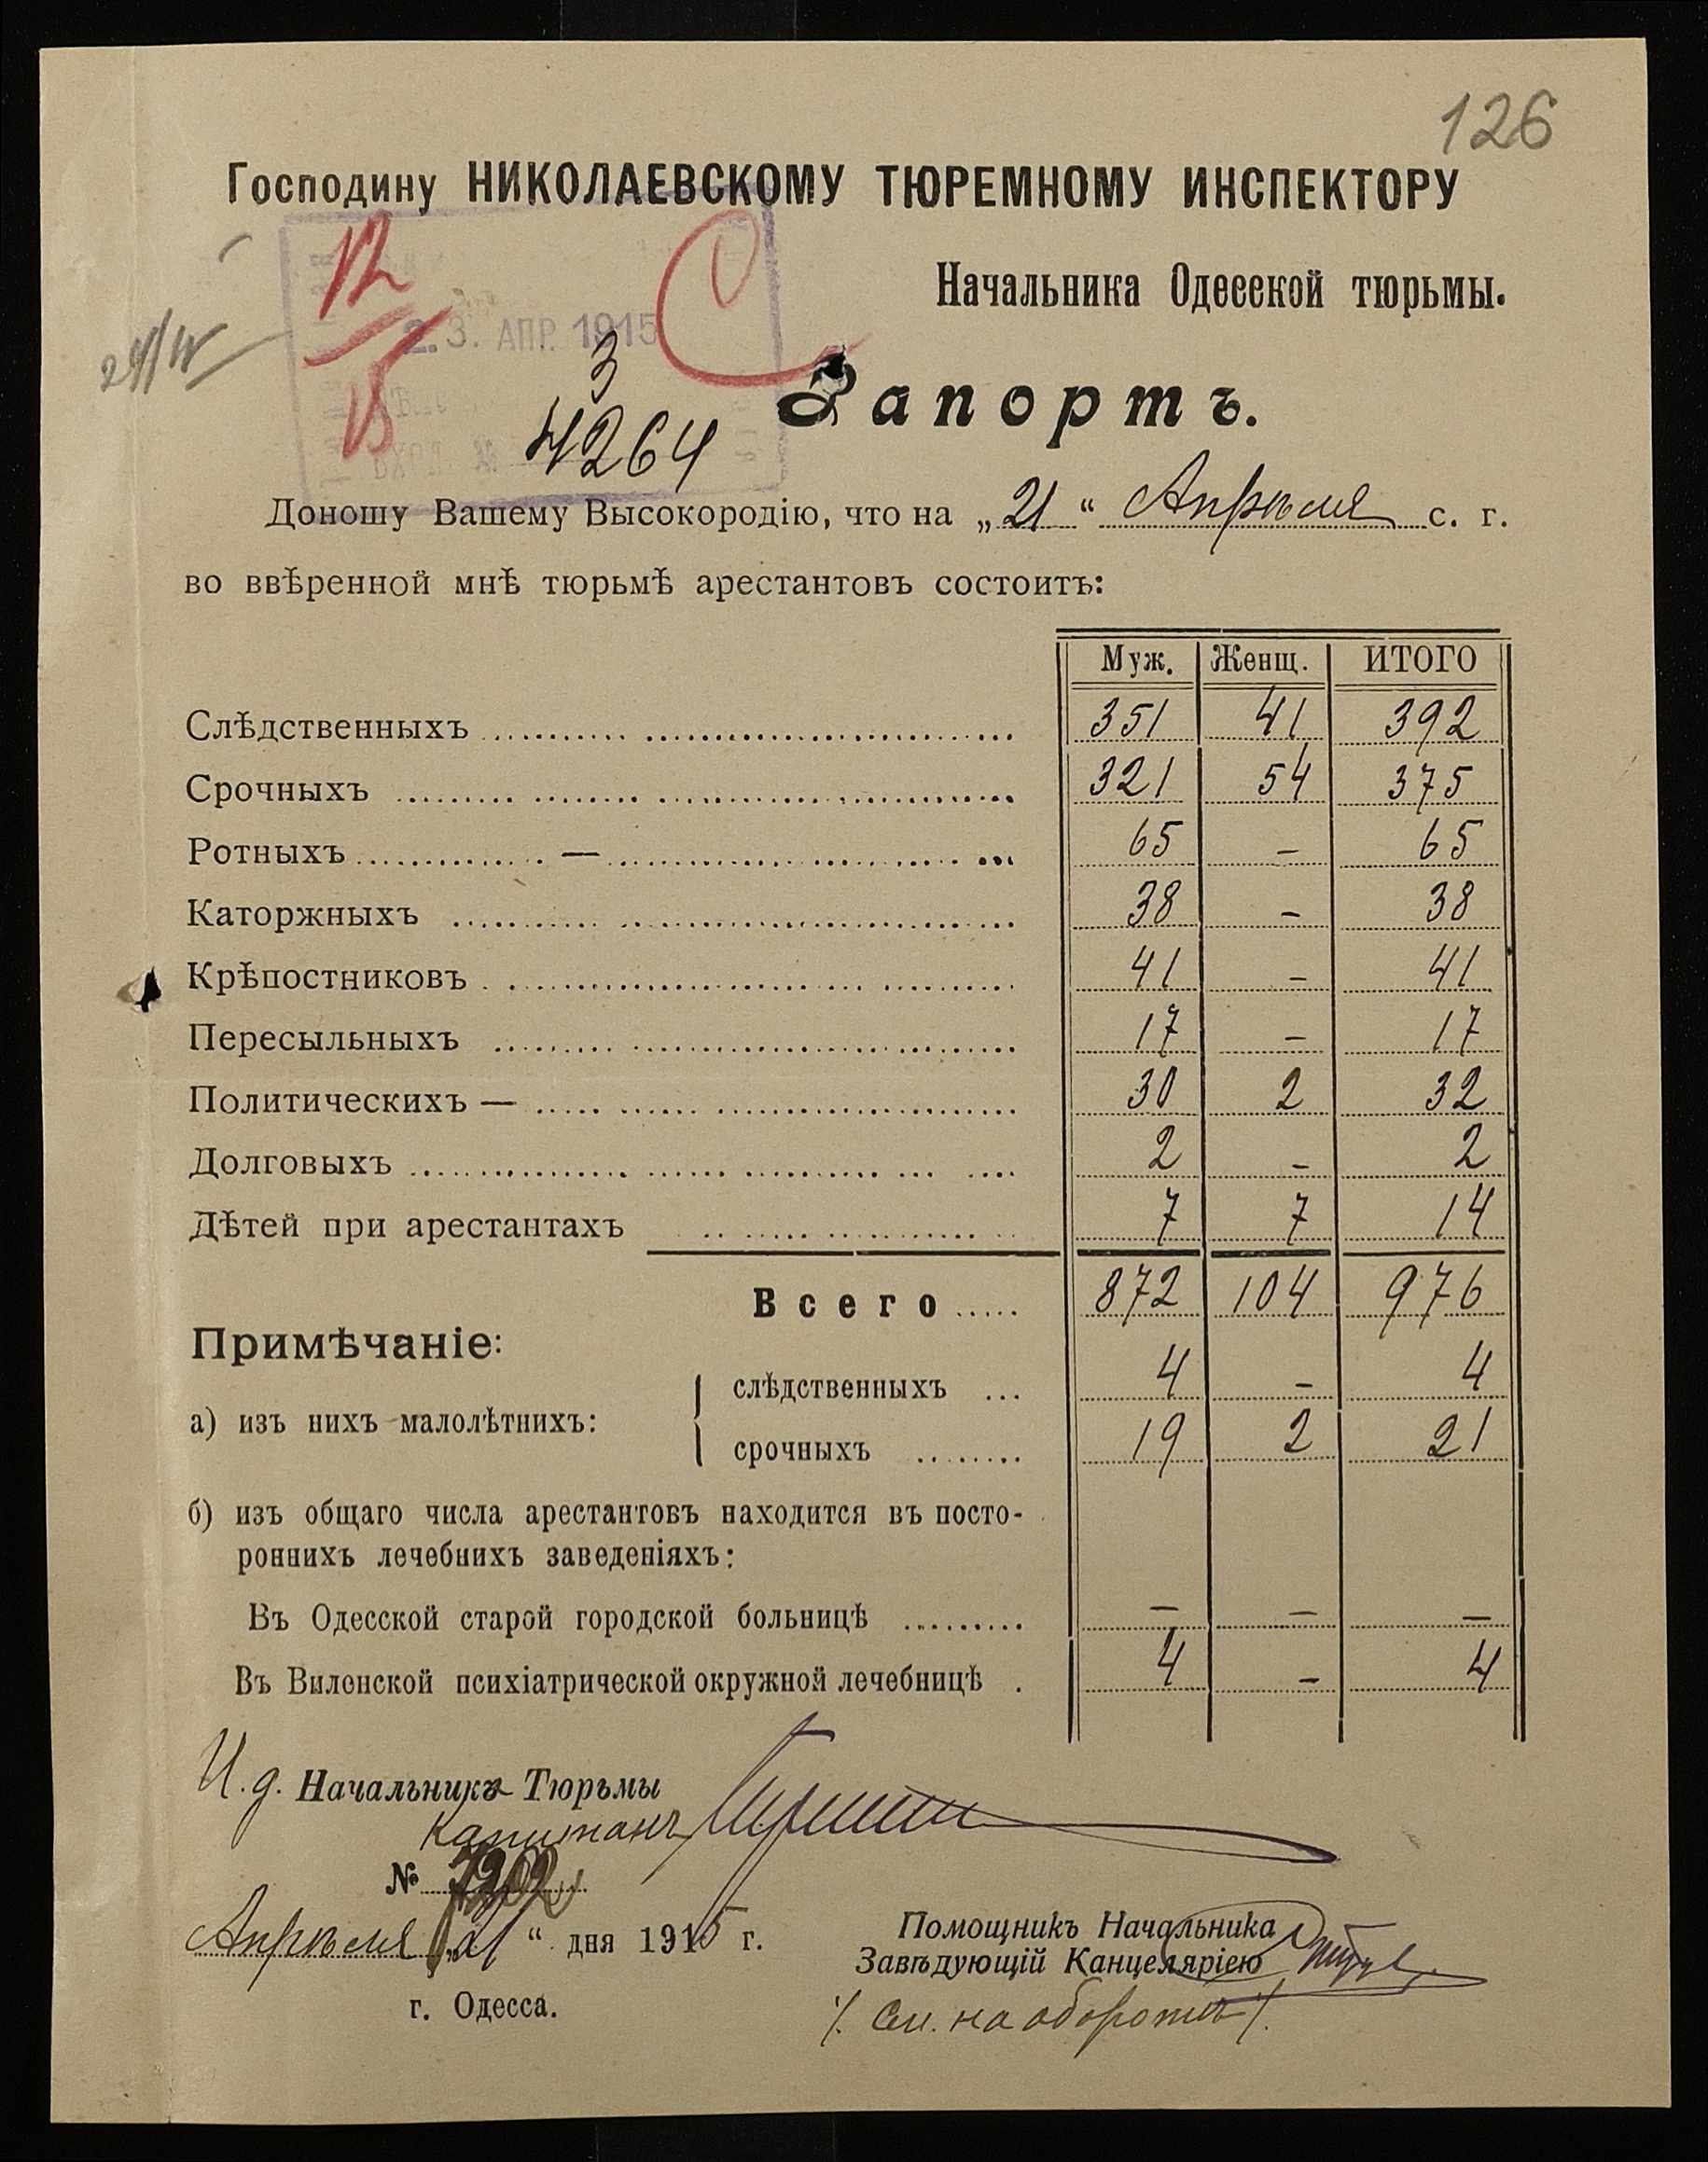 126
Господину НИКОЛАЕВСКОМУ ТЮРЕМНОМУ ИНСПЕКТОРУ
Начальника Одесской тюрьмы.
12
15
23. АПР. 1915
3
4264
Рапортъ.
Доношу Вашему Высокородію, что на „21“ Апрѣля с. г.
во ввѣренной мнѣ тюрьмѣ арестантовъ состоитъ:
Муж. Женщ. ИТОГО
Слѣдственныхъ 351 41 392
Срочныхъ 321 54 375
Ротныхъ — 65 – 65
Каторжныхъ 38 – 38
Крѣпостниковъ 41 – 41
Пересыльныхъ 17 – 17
Политическихъ — 30 2 32
Долговыхъ 2 – 2
Дѣтей при арестантахъ 7 7 14
Всего 872 104 976
Примѣчаніе:
а) изъ нихъ малолѣтнихъ:
слѣдственныхъ 4 – 4
срочныхъ 19 2 21
б) изъ общаго числа арестантовъ находится въ посто-
роннихъ лечебнихъ заведеніяхъ:
Въ Одесской старой городской больницѣ – – –
Въ Виленской психіатрической окружной лечебницѣ 4 – 4
И.д. Начальникъ Тюрьмы
Капитанъ
№
Апрѣля „21“ дня 1915 г.
г. Одесса.
Помощникъ Начальника
Завѣдующій Канцеляріею
/. См. на оборотѣ /.